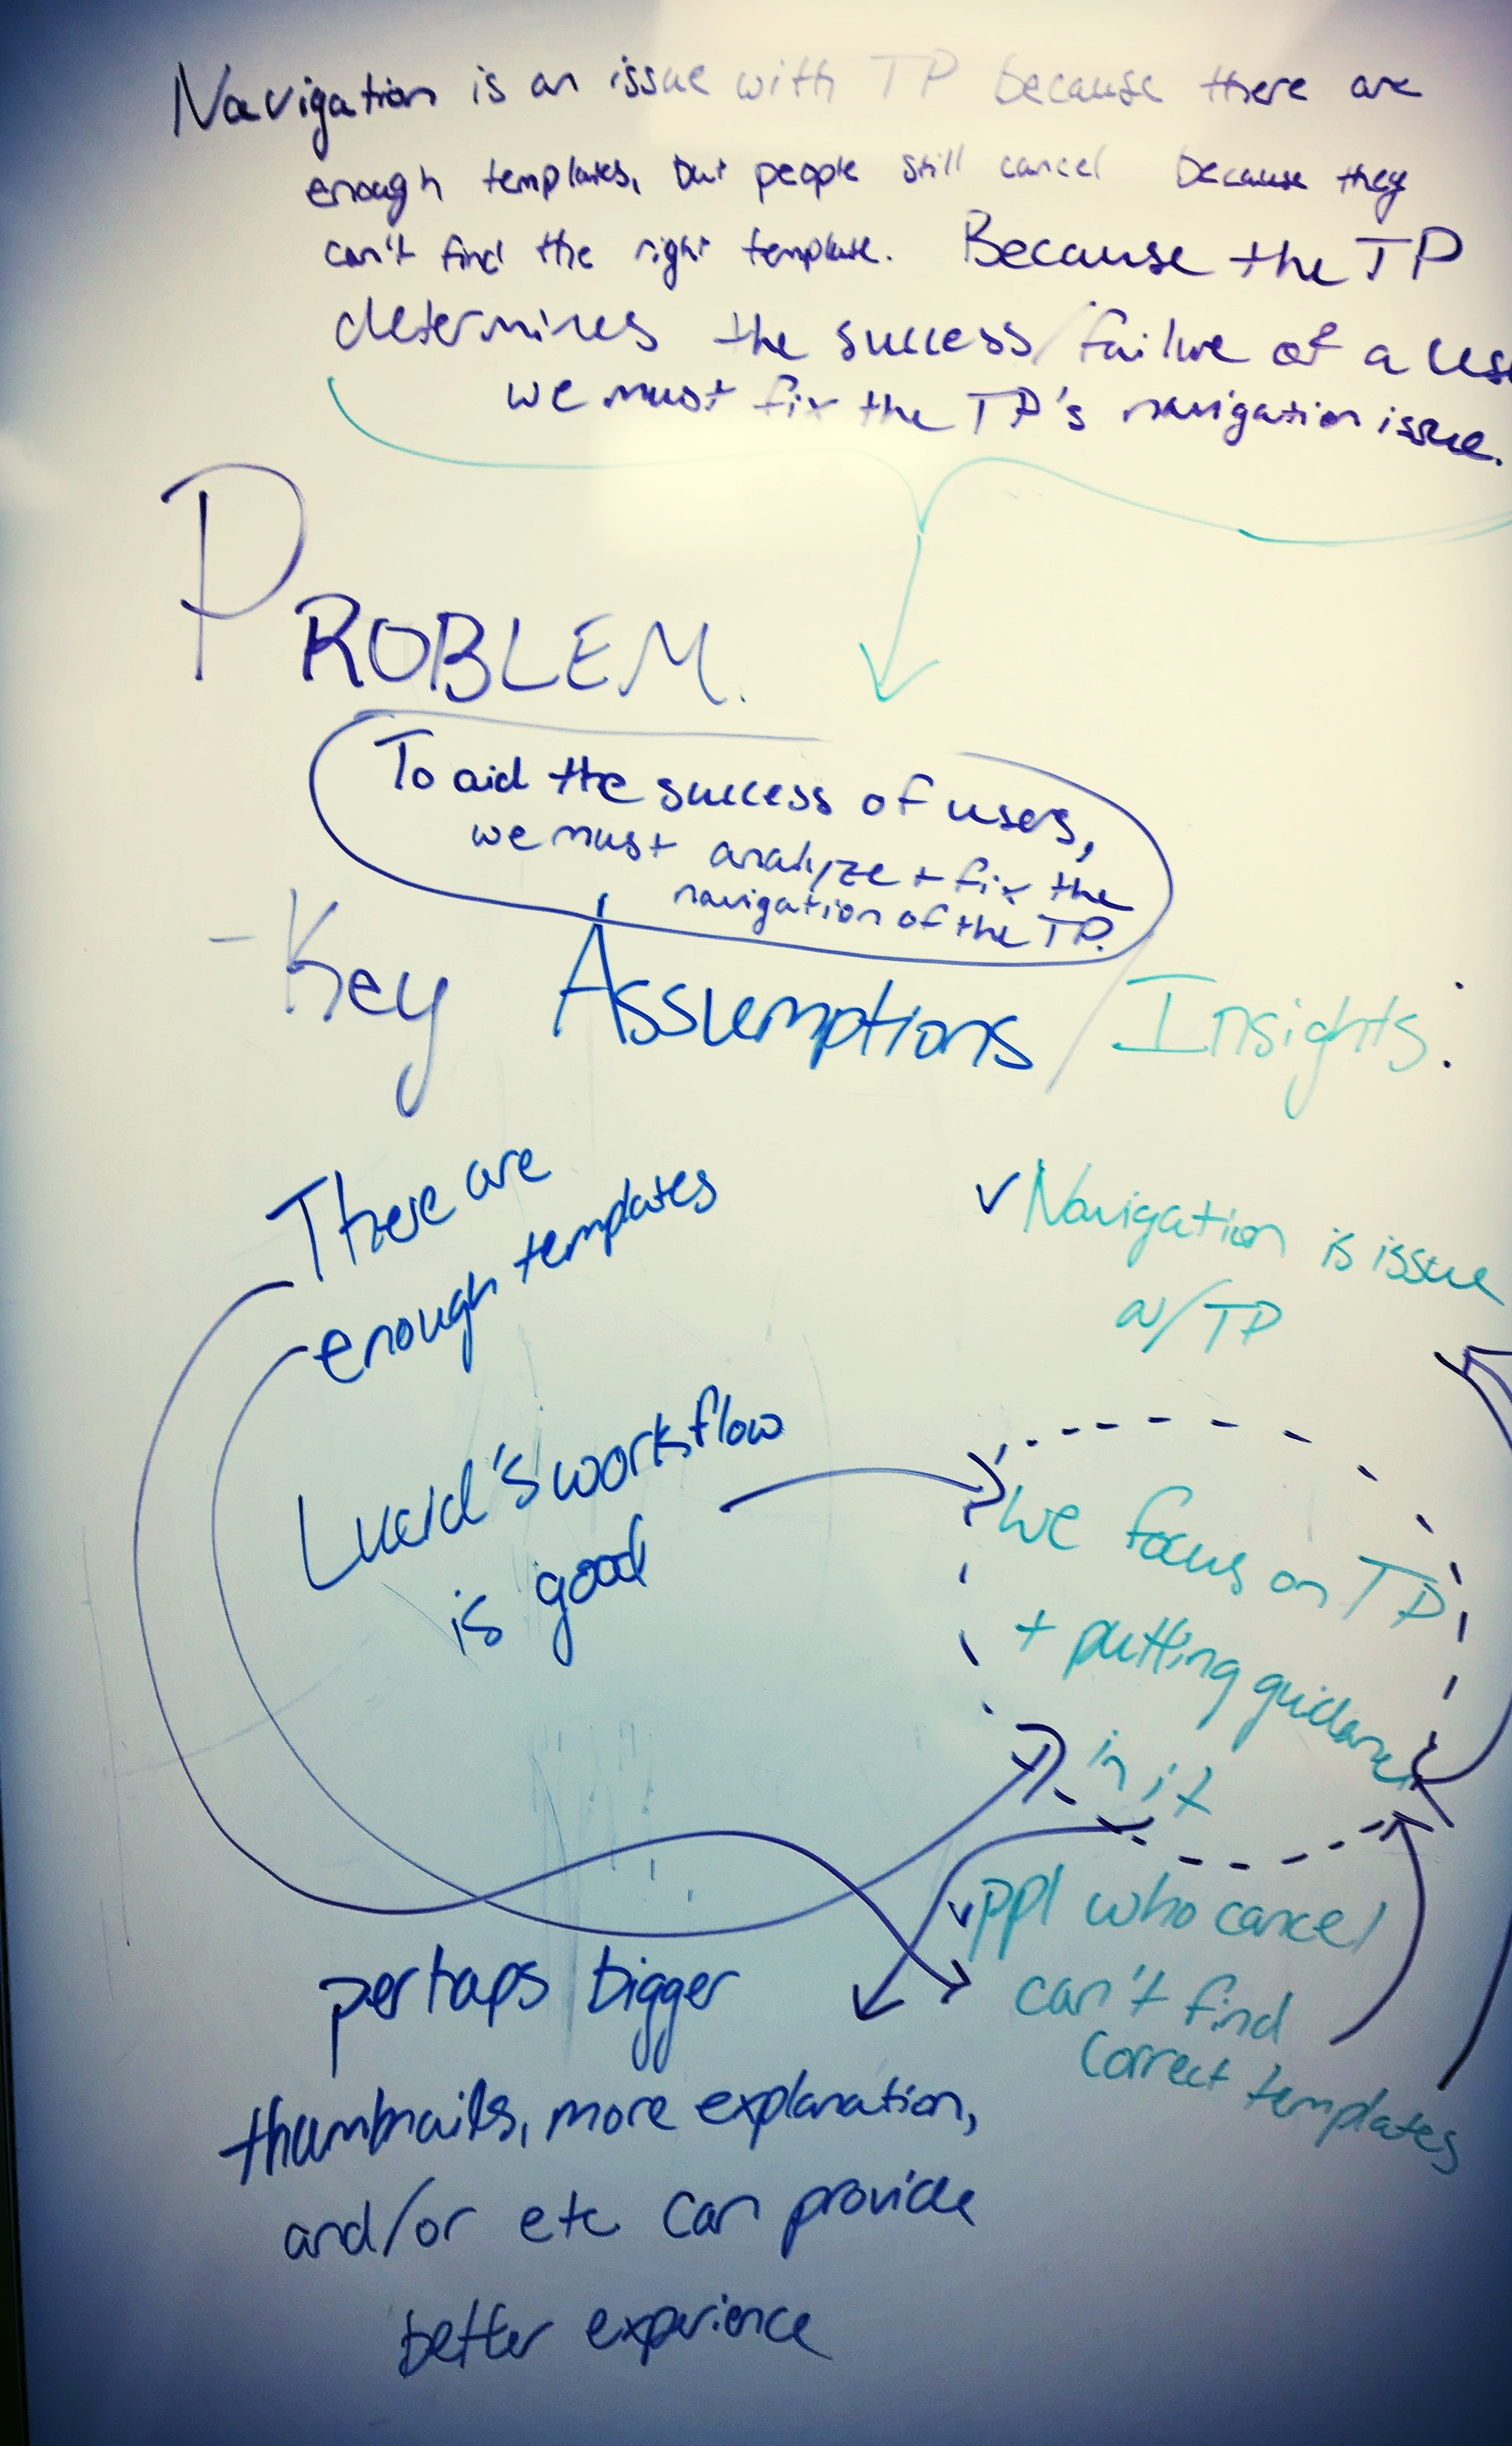 Navigation is an issue with TP because there are
enough templates, but people still cancel because they
can't find the right template. Because the TP
determines the success/failure of a
we must fix the TP's navigation issue.
PROBLEM.
To aid the success of users,
we must analyze + fix the
navigation of the TP.
- Key Assumptions / Insights:
There are
enough templates
✓ Navigation is issue
w/ TP
Lucid's workflow
is good
We focus on TP
+ putting guidance
in it
✓ ppl who cancel
can't find
correct templates
perhaps bigger
thumbnails, more explanation,
and/or etc can provide
better experience